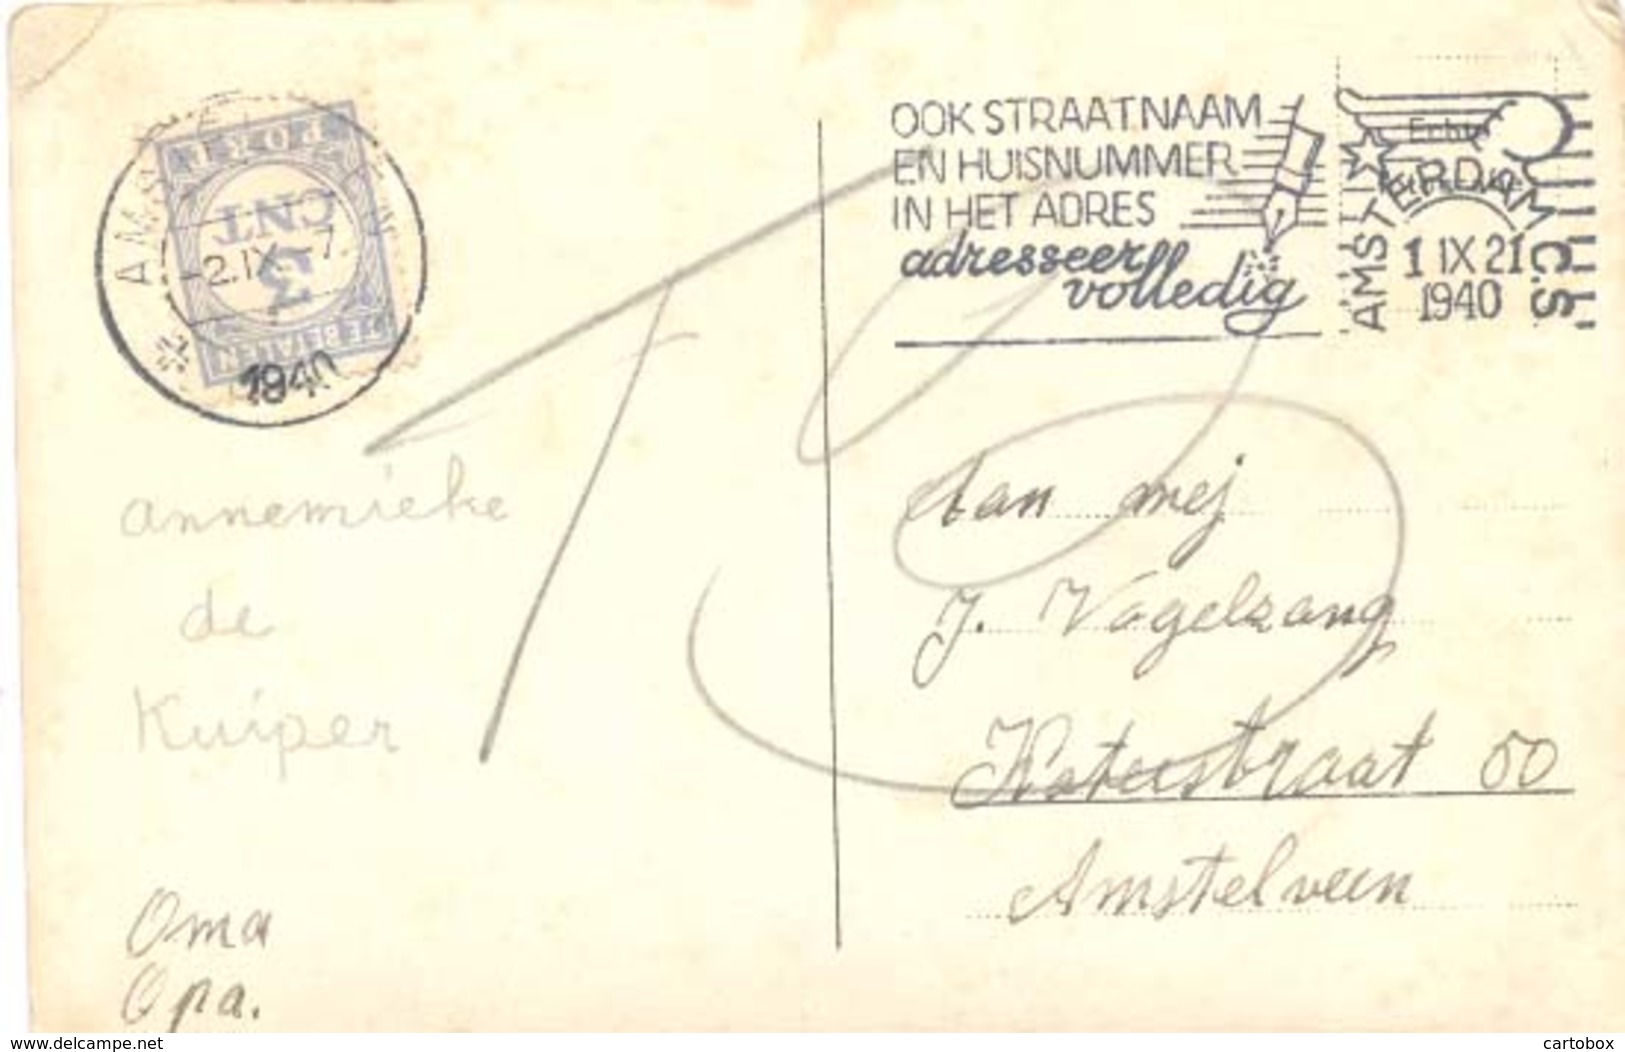 AMS
PORT
CNT
-2.IX -7.
5
TE BETALEN
1940
OOK STRAATNAAM
EN HUISNUMMER
IN HET ADRES
adresseer
volledig
AMSTERDAM C.S
1 IX 21
1940
T 5
annemieke
de
Kuiper
Oma
Opa.
Aan mej
J. Vogelzang
straat 50
Amstelveen
www.delcampe.net
cartobox